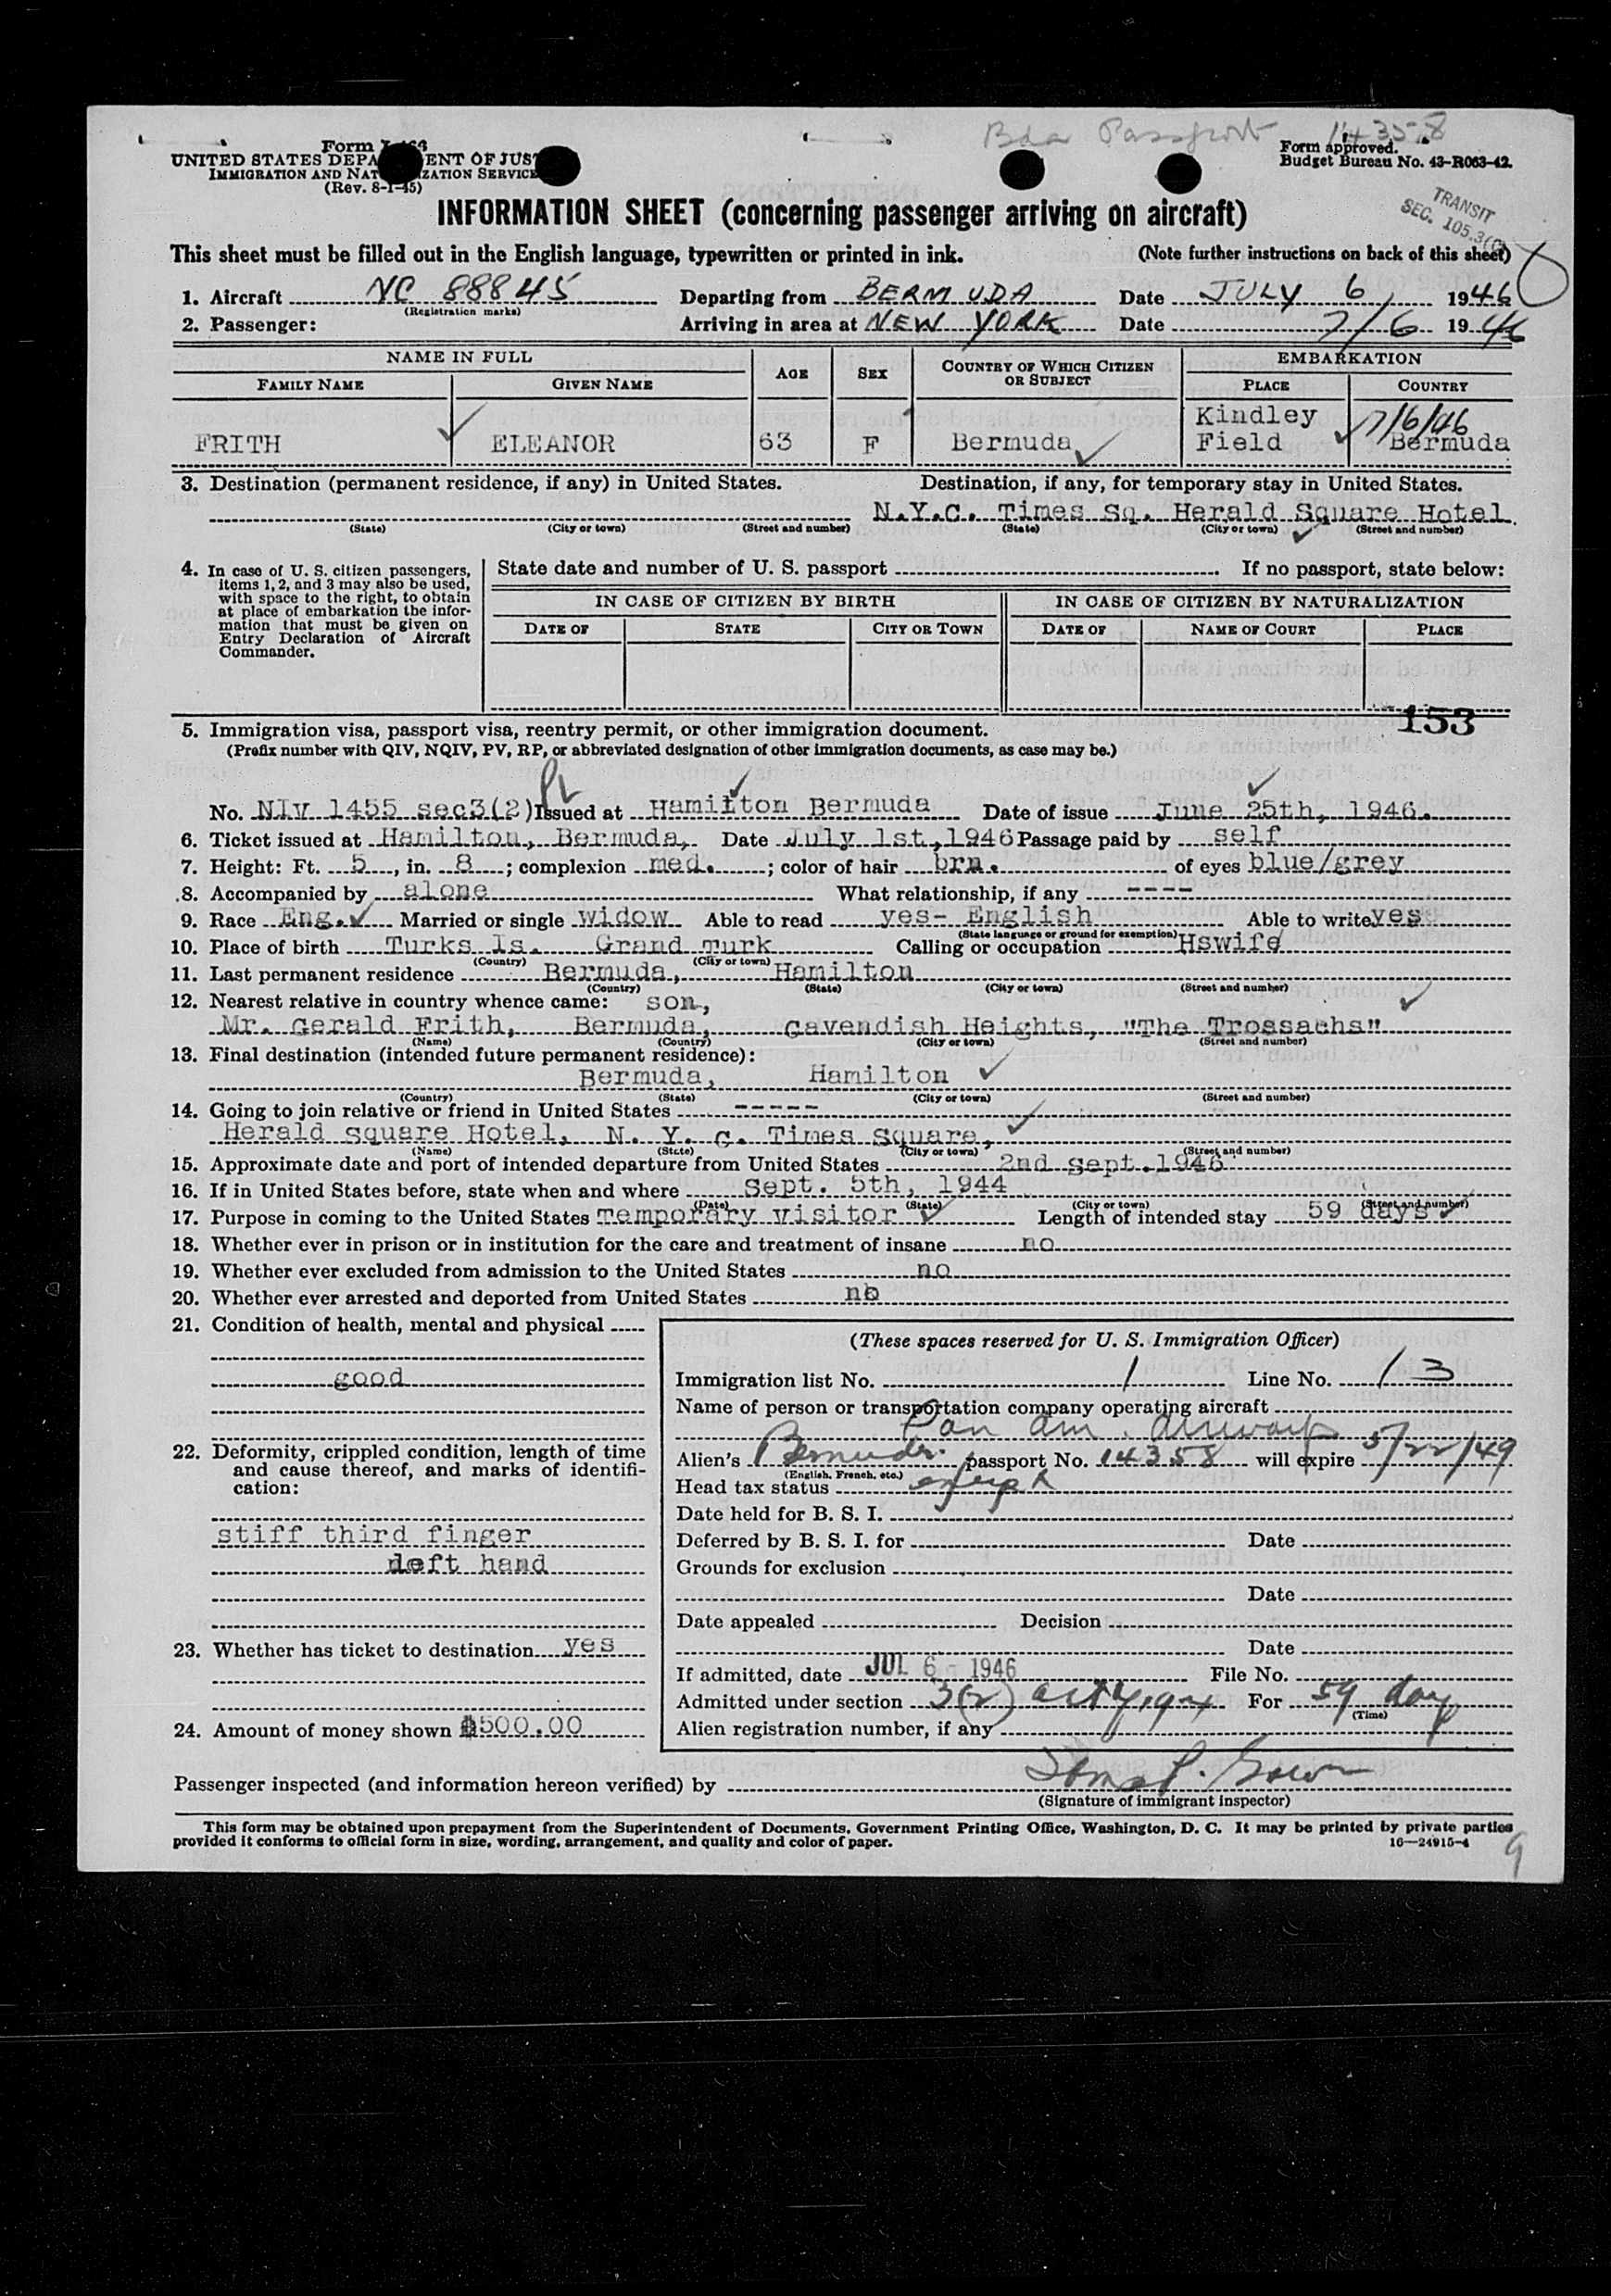 Bda Passport 14358
Form I-466
UNITED STATES DEPARTMENT OF JUSTICE
IMMIGRATION AND NATURALIZATION SERVICE
(Rev. 8-1-45)
Form approved.
Budget Bureau No. 43-R063-42.
TRANSIT
SEC. 105.3(
INFORMATION SHEET (concerning passenger arriving on aircraft)
This sheet must be filled out in the English language, typewritten or printed in ink. (Note further instructions on back of this sheet)
1. Aircraft NC 88845 Departing from BERMUDA Date JULY 6, 1946
(Registration marks)
2. Passenger: Arriving in area at NEW YORK Date 7/6 1946
NAME IN FULL AGE SEX COUNTRY OF WHICH CITIZEN OR SUBJECT EMBARKATION
FAMILY NAME GIVEN NAME PLACE COUNTRY
Kindley 7/6/46
FRITH ELEANOR 63 F Bermuda Field Bermuda
3. Destination (permanent residence, if any) in United States. Destination, if any, for temporary stay in United States.
N.Y.C. Times Sq. Herald Square Hotel.
(State) (City or town) (Street and number) (State) (City or town) (Street and number)
4. In case of U. S. citizen passengers, items 1, 2, and 3 may also be used, with space to the right, to obtain at place of embarkation the information that must be given on Entry Declaration of Aircraft Commander.
State date and number of U. S. passport If no passport, state below:
IN CASE OF CITIZEN BY BIRTH IN CASE OF CITIZEN BY NATURALIZATION
DATE OF STATE CITY OR TOWN DATE OF NAME OF COURT PLACE
153
5. Immigration visa, passport visa, reentry permit, or other immigration document.
(Prefix number with QIV, NQIV, PV, RP, or abbreviated designation of other immigration documents, as case may be.)
No. NIV 1455 sec3(2) Issued at Hamilton Bermuda Date of issue June 25th, 1946.
6. Ticket issued at Hamilton, Bermuda, Date July 1st, 1946 Passage paid by self
7. Height: Ft. 5, in. 8; complexion med.; color of hair brn. of eyes blue/grey
8. Accompanied by alone What relationship, if any ----
9. Race Eng. Married or single widow Able to read yes- English Able to write yes
(State language or ground for exemption)
10. Place of birth Turks Is. Grand Turk Calling or occupation Hswife
(Country) (City or town)
11. Last permanent residence Bermuda, Hamilton
(Country) (State) (City or town) (Street and number)
12. Nearest relative in country whence came: son,
Mr. Gerald Frith, Bermuda, Cavendish Heights, "The Trossachs"
(Name) (Country) (City or town) (Street and number)
13. Final destination (intended future permanent residence):
Bermuda, Hamilton
(Country) (State) (City or town) (Street and number)
14. Going to join relative or friend in United States -----
Herald Square Hotel, N. Y. C. Times Square,
(Name) (State) (City or town) (Street and number)
15. Approximate date and port of intended departure from United States 2nd Sept. 1946
16. If in United States before, state when and where Sept. 5th, 1944
(Date) (State) (City or town) (Street and number)
17. Purpose in coming to the United States Temporary visitor Length of intended stay 59 days
18. Whether ever in prison or in institution for the care and treatment of insane no
19. Whether ever excluded from admission to the United States no
20. Whether ever arrested and deported from United States no
21. Condition of health, mental and physical
good
22. Deformity, crippled condition, length of time and cause thereof, and marks of identification:
stiff third finger
left hand
23. Whether has ticket to destination yes
24. Amount of money shown $500.00
(These spaces reserved for U. S. Immigration Officer)
Immigration list No. 1 Line No. 13
Name of person or transportation company operating aircraft
Pan Am. Airways
Alien's Bermuda passport No. 14358 will expire 5/22/49
(English, French, etc.)
Head tax status exempt
Date held for B. S. I.
Deferred by B. S. I. for Date
Grounds for exclusion
Date
Date appealed Decision
Date
If admitted, date JUL 6 - 1946 File No.
Admitted under section 3(2) act 1924 For 59 day
(Time)
Alien registration number, if any
Passenger inspected (and information hereon verified) by
(Signature of immigrant inspector)
This form may be obtained upon prepayment from the Superintendent of Documents, Government Printing Office, Washington, D. C. It may be printed by private parties
provided it conforms to official form in size, wording, arrangement, and quality and color of paper. 16—24915-4
9